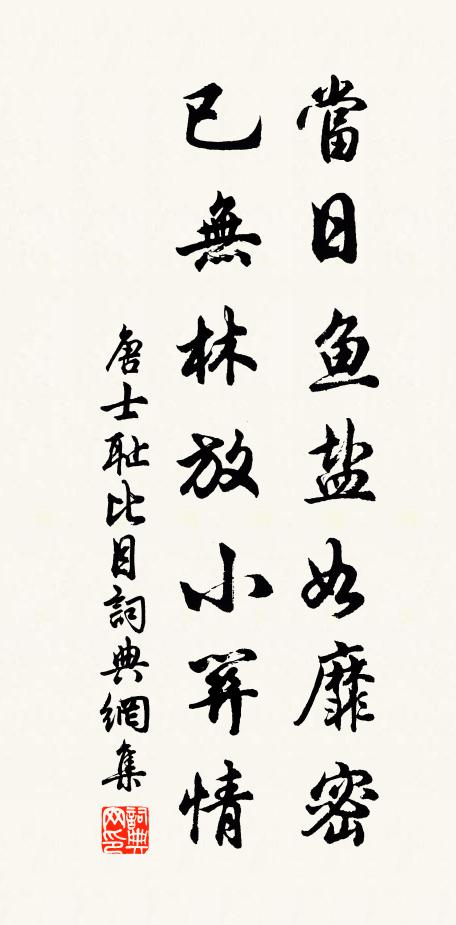 當日鱼盐如靡密
已無林放小情
唐士耻比目詞典網集
詞典网印